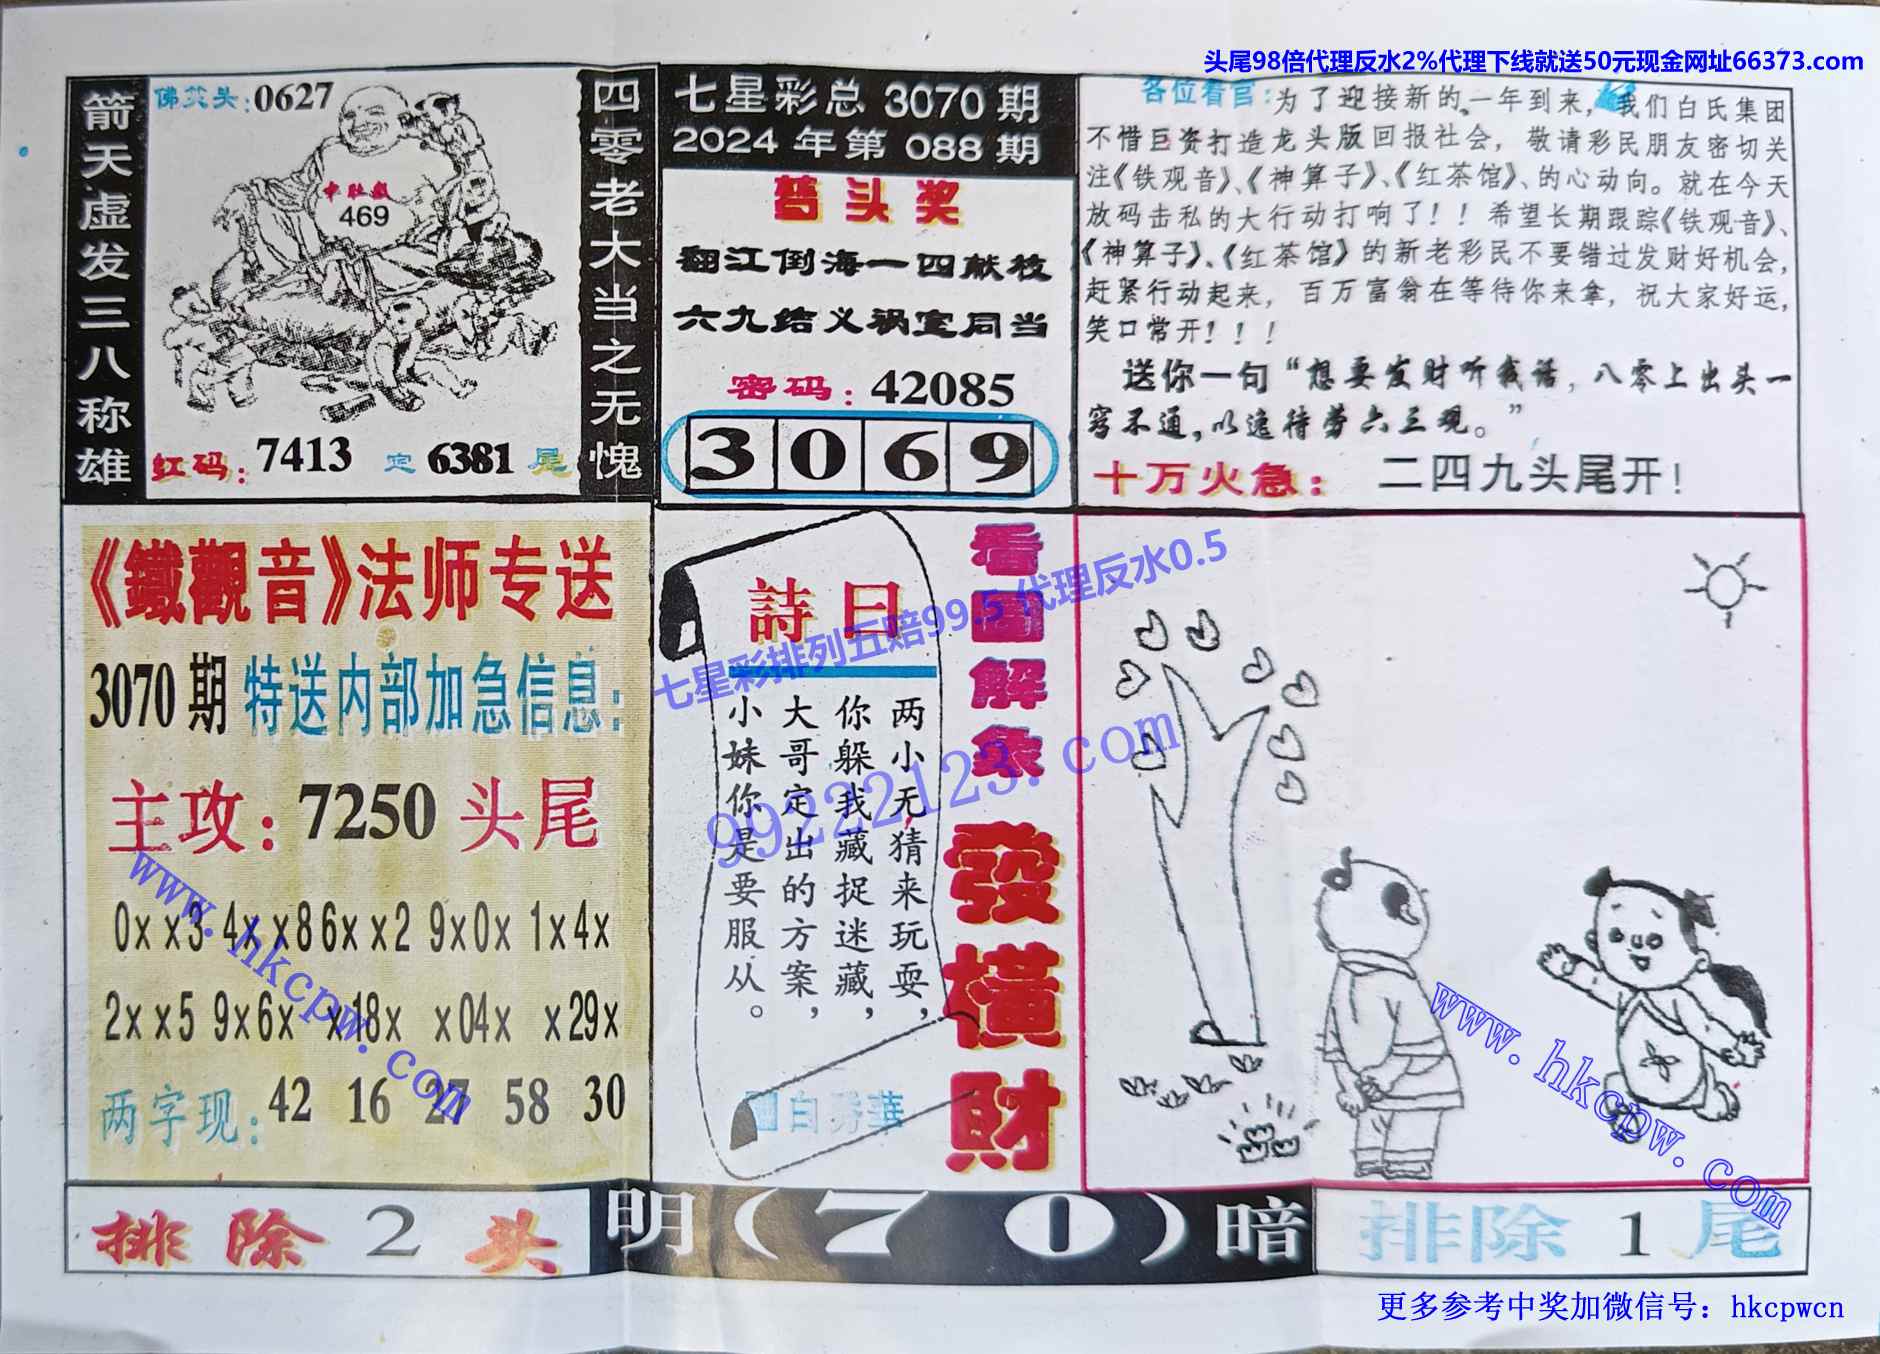 头尾98倍代理反水2%代理下线就送50元现金网址66373.com
箭天虚发三八称雄
佛笑头:0627
中肚数
469
红码:7413 定 6381 尾
四零老大当之无愧
七星彩总 3070 期
2024 年第 088 期
头奖
翻江倒海一四献枝
六九结义祸宜同当
密码:42085
3069
各位看官:为了迎接新的一年到来,我们白氏集团
不惜巨资打造龙头版回报社会,敬请彩民朋友密切关
注《铁观音》、《神算子》、《红茶馆》、的心动向。就在今天
放码击私的大行动打响了!!希望长期跟踪《铁观音》、
《神算子》、《红茶馆》的新老彩民不要错过发财好机会,
赶紧行动起来,百万富翁在等待你来拿,祝大家好运,
笑口常开!!!
送你一句“想要发财听我话,八零上出头一
窍不通,以逸待劳六三现。”
十万火急:二四九头尾开!
《鐵觀音》法师专送
3070 期 特送内部加急信息:
主攻:7250 头尾
0xx3 4xx8 6xx2 9x0x 1x4x
2xx5 9x6x x18x x04x x29x
两字现:42 16 27 58 30
詩曰
两小无猜来玩耍,
你躲我藏捉迷藏,
大哥定出的方案,
小妹你是要服从。
看图解象
發橫財
七星彩排列五赔99.5 代理反水0.5
99222123.com
www.hkcpw.com
www.hkcpw.com
排除 2 头
明(70)暗
排除 1 尾
更多参考中奖加微信号:hkcpwcn